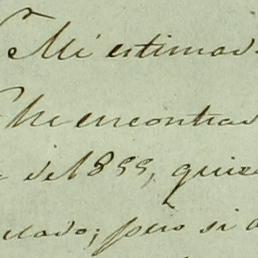 Mi estimad
He encontrad
de 1899, quie
uado; pero si a